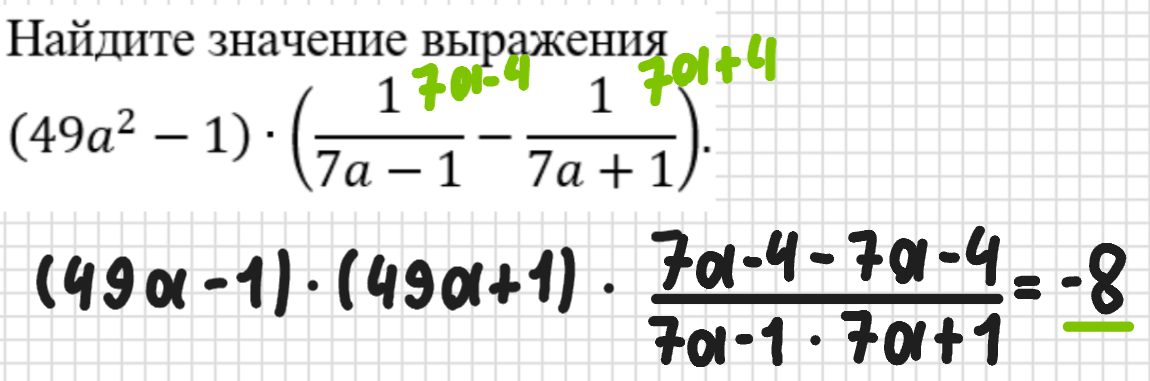 Найдите значение выражения
7a-4 7a+4
(49a² − 1) · (1/(7a − 1) − 1/(7a + 1)).
(49a-1) · (49a+1) · (7a-4-7a-4)/(7a-1 · 7a+1) = -8